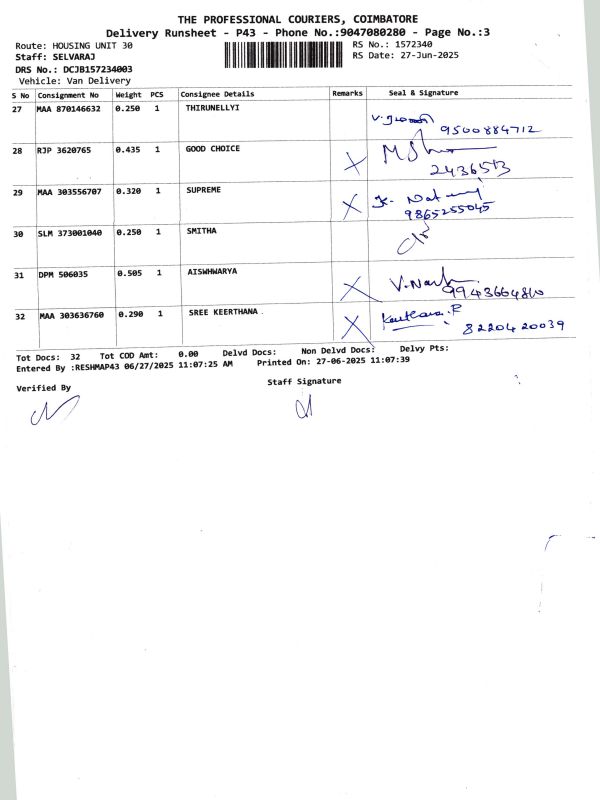 THE PROFESSIONAL COURIERS, COIMBATORE
Delivery Runsheet - P43 - Phone No.:9047080280 - Page No.:3
Route: HOUSING UNIT 30 RS No.: 1572340
Staff: SELVARAJ RS Date: 27-Jun-2025
DRS No.: DCJB157234003
Vehicle: Van Delivery
S No Consignment No Weight PCS Consignee Details Remarks Seal & Signature
27 MAA 870146632 0.250 1 THIRUNELLYI
9500884712
28 RJP 3620765 0.435 1 GOOD CHOICE
2436513
29 MAA 303556707 0.320 1 SUPREME
9865255045
30 SLM 373001040 0.250 1 SMITHA
31 DPM 506035 0.505 1 AISWHWARYA
32 MAA 303636760 0.290 1 SREE KEERTHANA
8220420039
Tot Docs: 32 Tot COD Amt: 0.00 Delvd Docs: Non Delvd Docs: Delvy Pts:
Entered By :RESHMAP43 06/27/2025 11:07:25 AM Printed On: 27-06-2025 11:07:39
Verified By Staff Signature